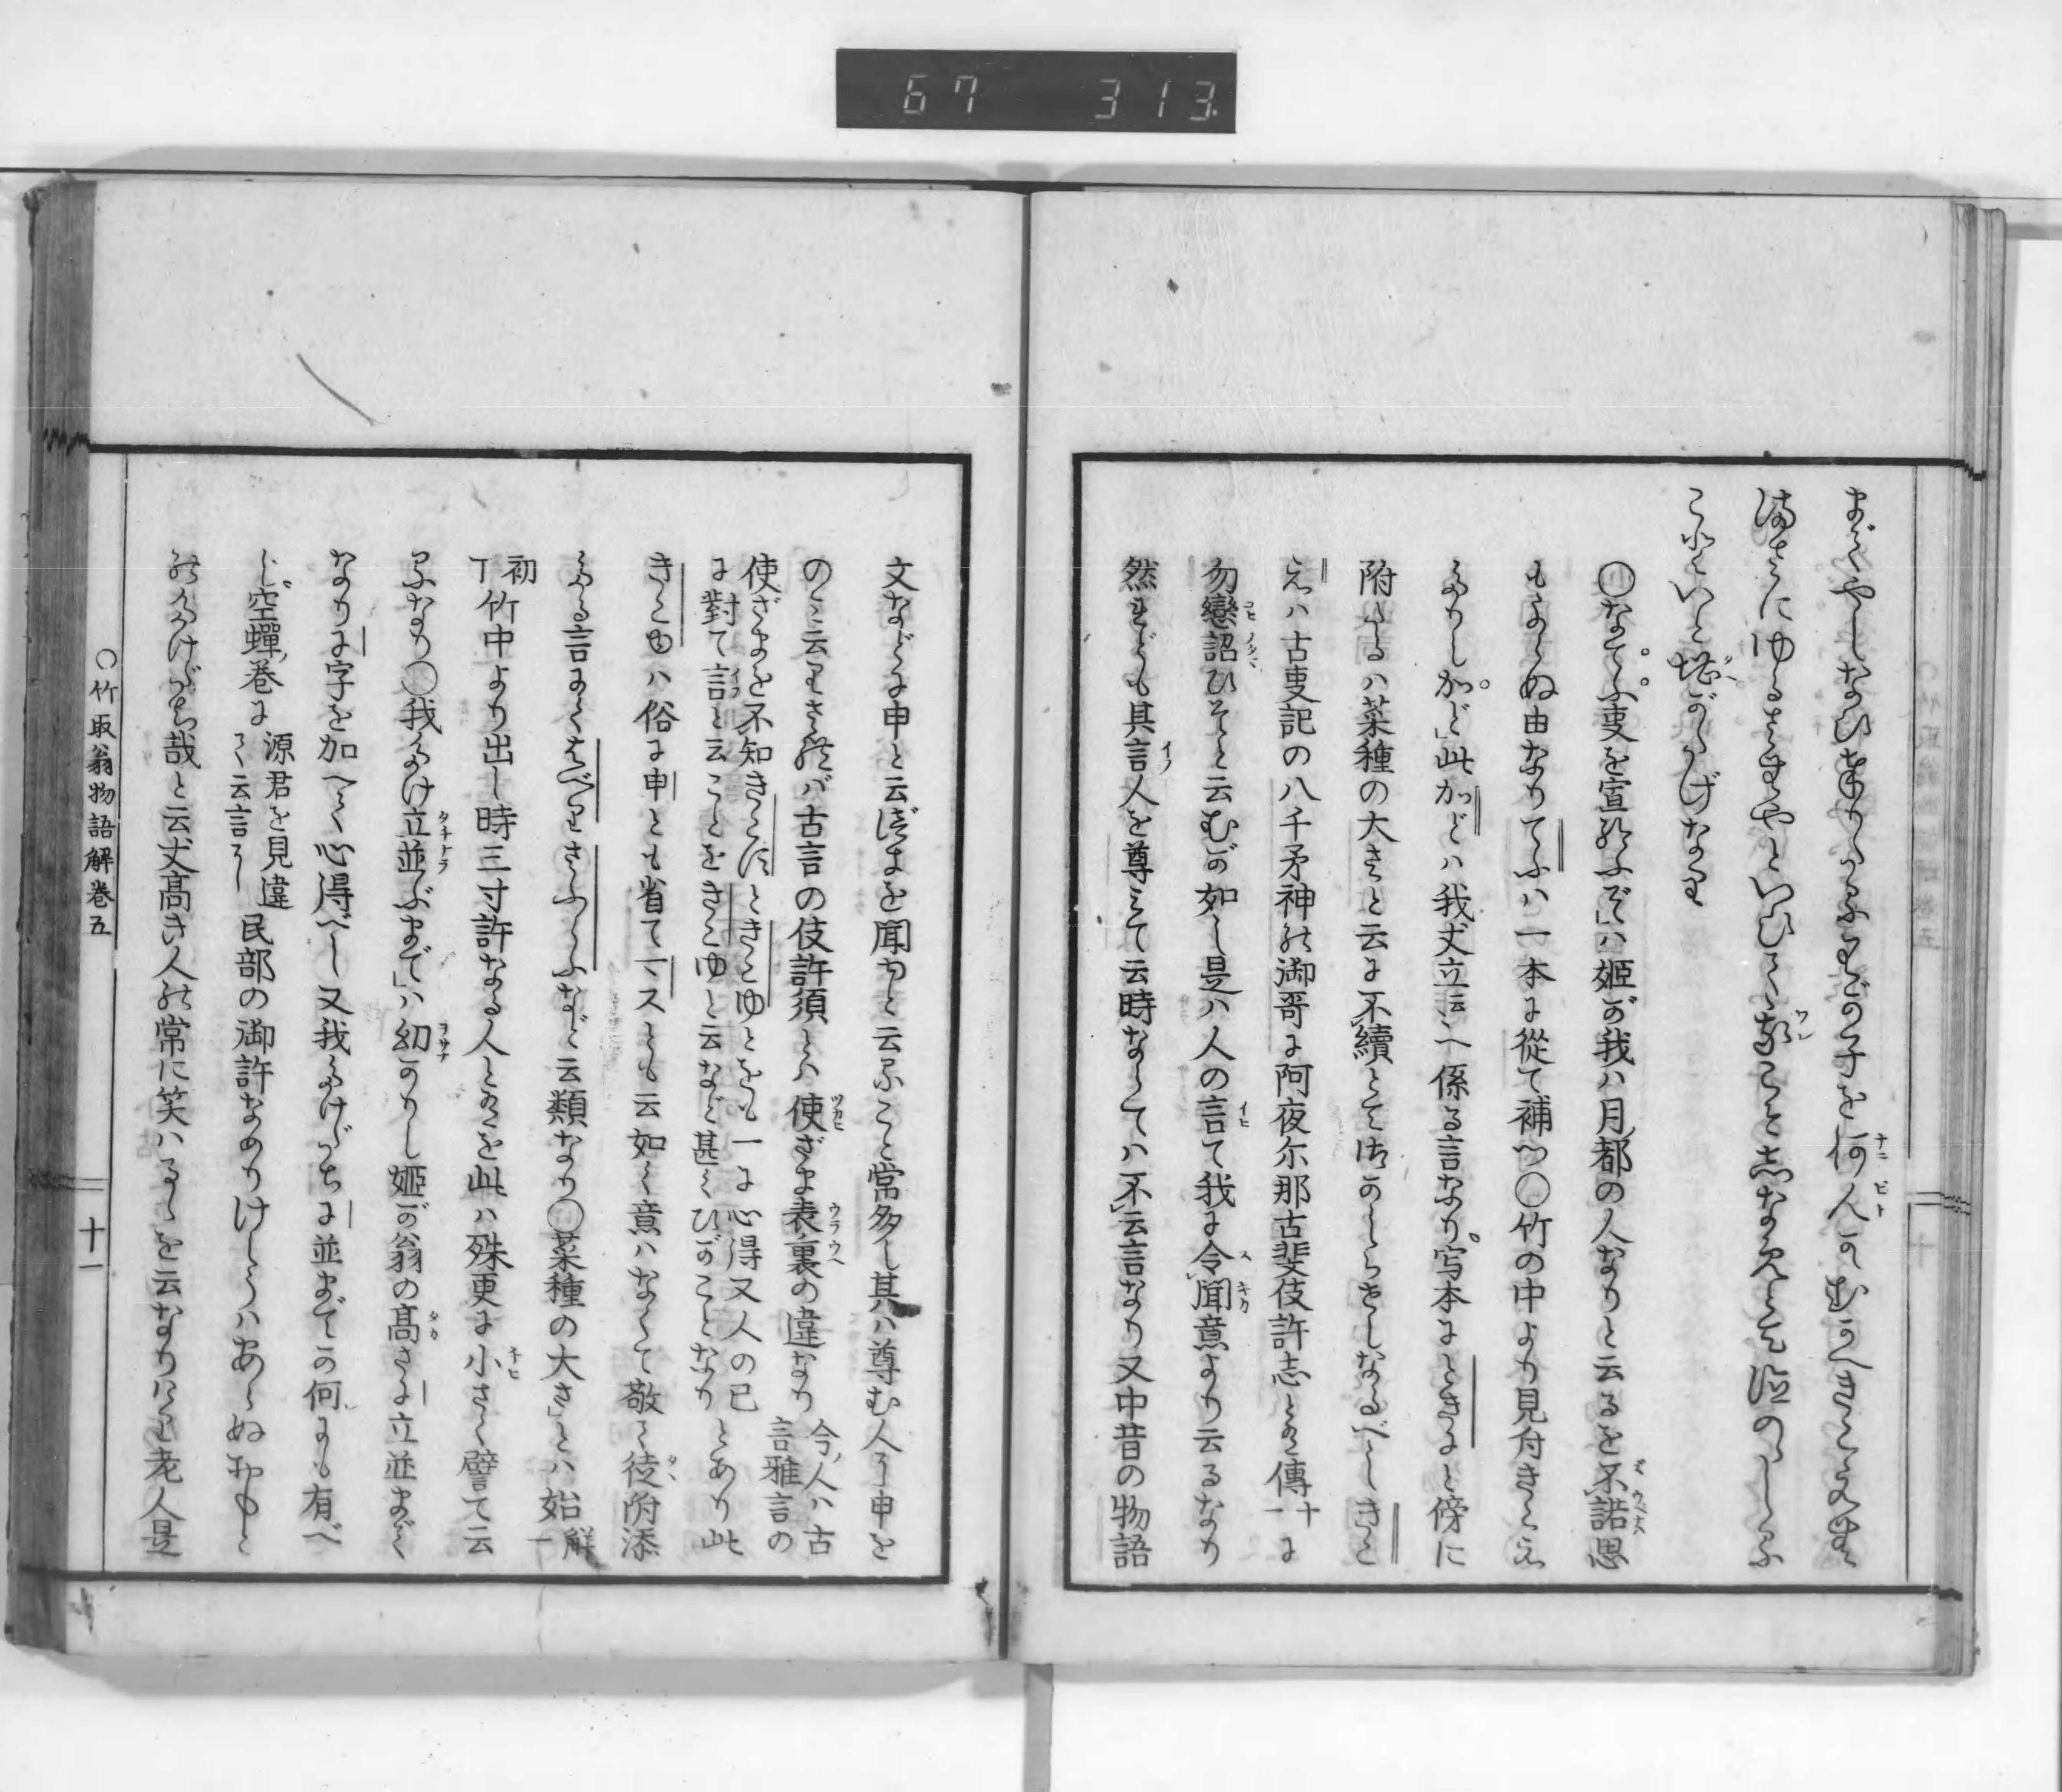 67 313.
までやしなひ奉りたるわが子を何人かむかへきこえむ
まさにゆるさむやといひて我こそしなめとて泣のゝしる
こといと堪がたげなり
○なでふ事を宣給ふぞ」ハ姫が我ハ月都の人なりと云るを不諾思
もよらぬ由なりてふハ一本に從て補つ○竹の中より見付きこえ
たりしかど」此かどハ我丈立云々へ係る言なり写本にときにと傍に
附たるハ菜種の大さと云に不續とて
えハ古事記の八千矛神の御哥に阿夜尓那古斐伎許志とある傳十一に
勿戀詔ひそと云むが如し是ハ人の言て我に令聞意より云るなり
然れども其言人を尊みて云時ならでハ不云言なり又中昔の物語
文などに申と云べきを聞ゆと云ふこと常多し其ハ尊む人に申を
のみ云りされバ古言の伎許須とハ使ざま表裏の違なり今人ハ古言雅言の
使ざまを不知きこすときこゆとをも一に心得又人の己
に對て言と云ことをきこゆと云など甚くひがことなりとあり此
きこゆハ俗に申とも省てスとも云如く意ハなくて敬て徒附添
たる言にてはべりさふらふなど云類なり○菜種の大さ」とハ始解一
初丁竹中より出し時三寸許なる人とあるを此ハ殊更に小さく譬て云
ふなり○我たけ立並ぶまで」ハ幼かりし姫が翁の高さに立並まで
なりに字を加へて心得べし又我たけだちに並までか何にも有べ
し空蟬巻に源君を見違て云言に民部の御許なめりけしうハあらぬおもと
のたけだち哉と云丈高き人の常に笑ハるゝを云なりけり老人是
○竹取翁物語解卷五
十一